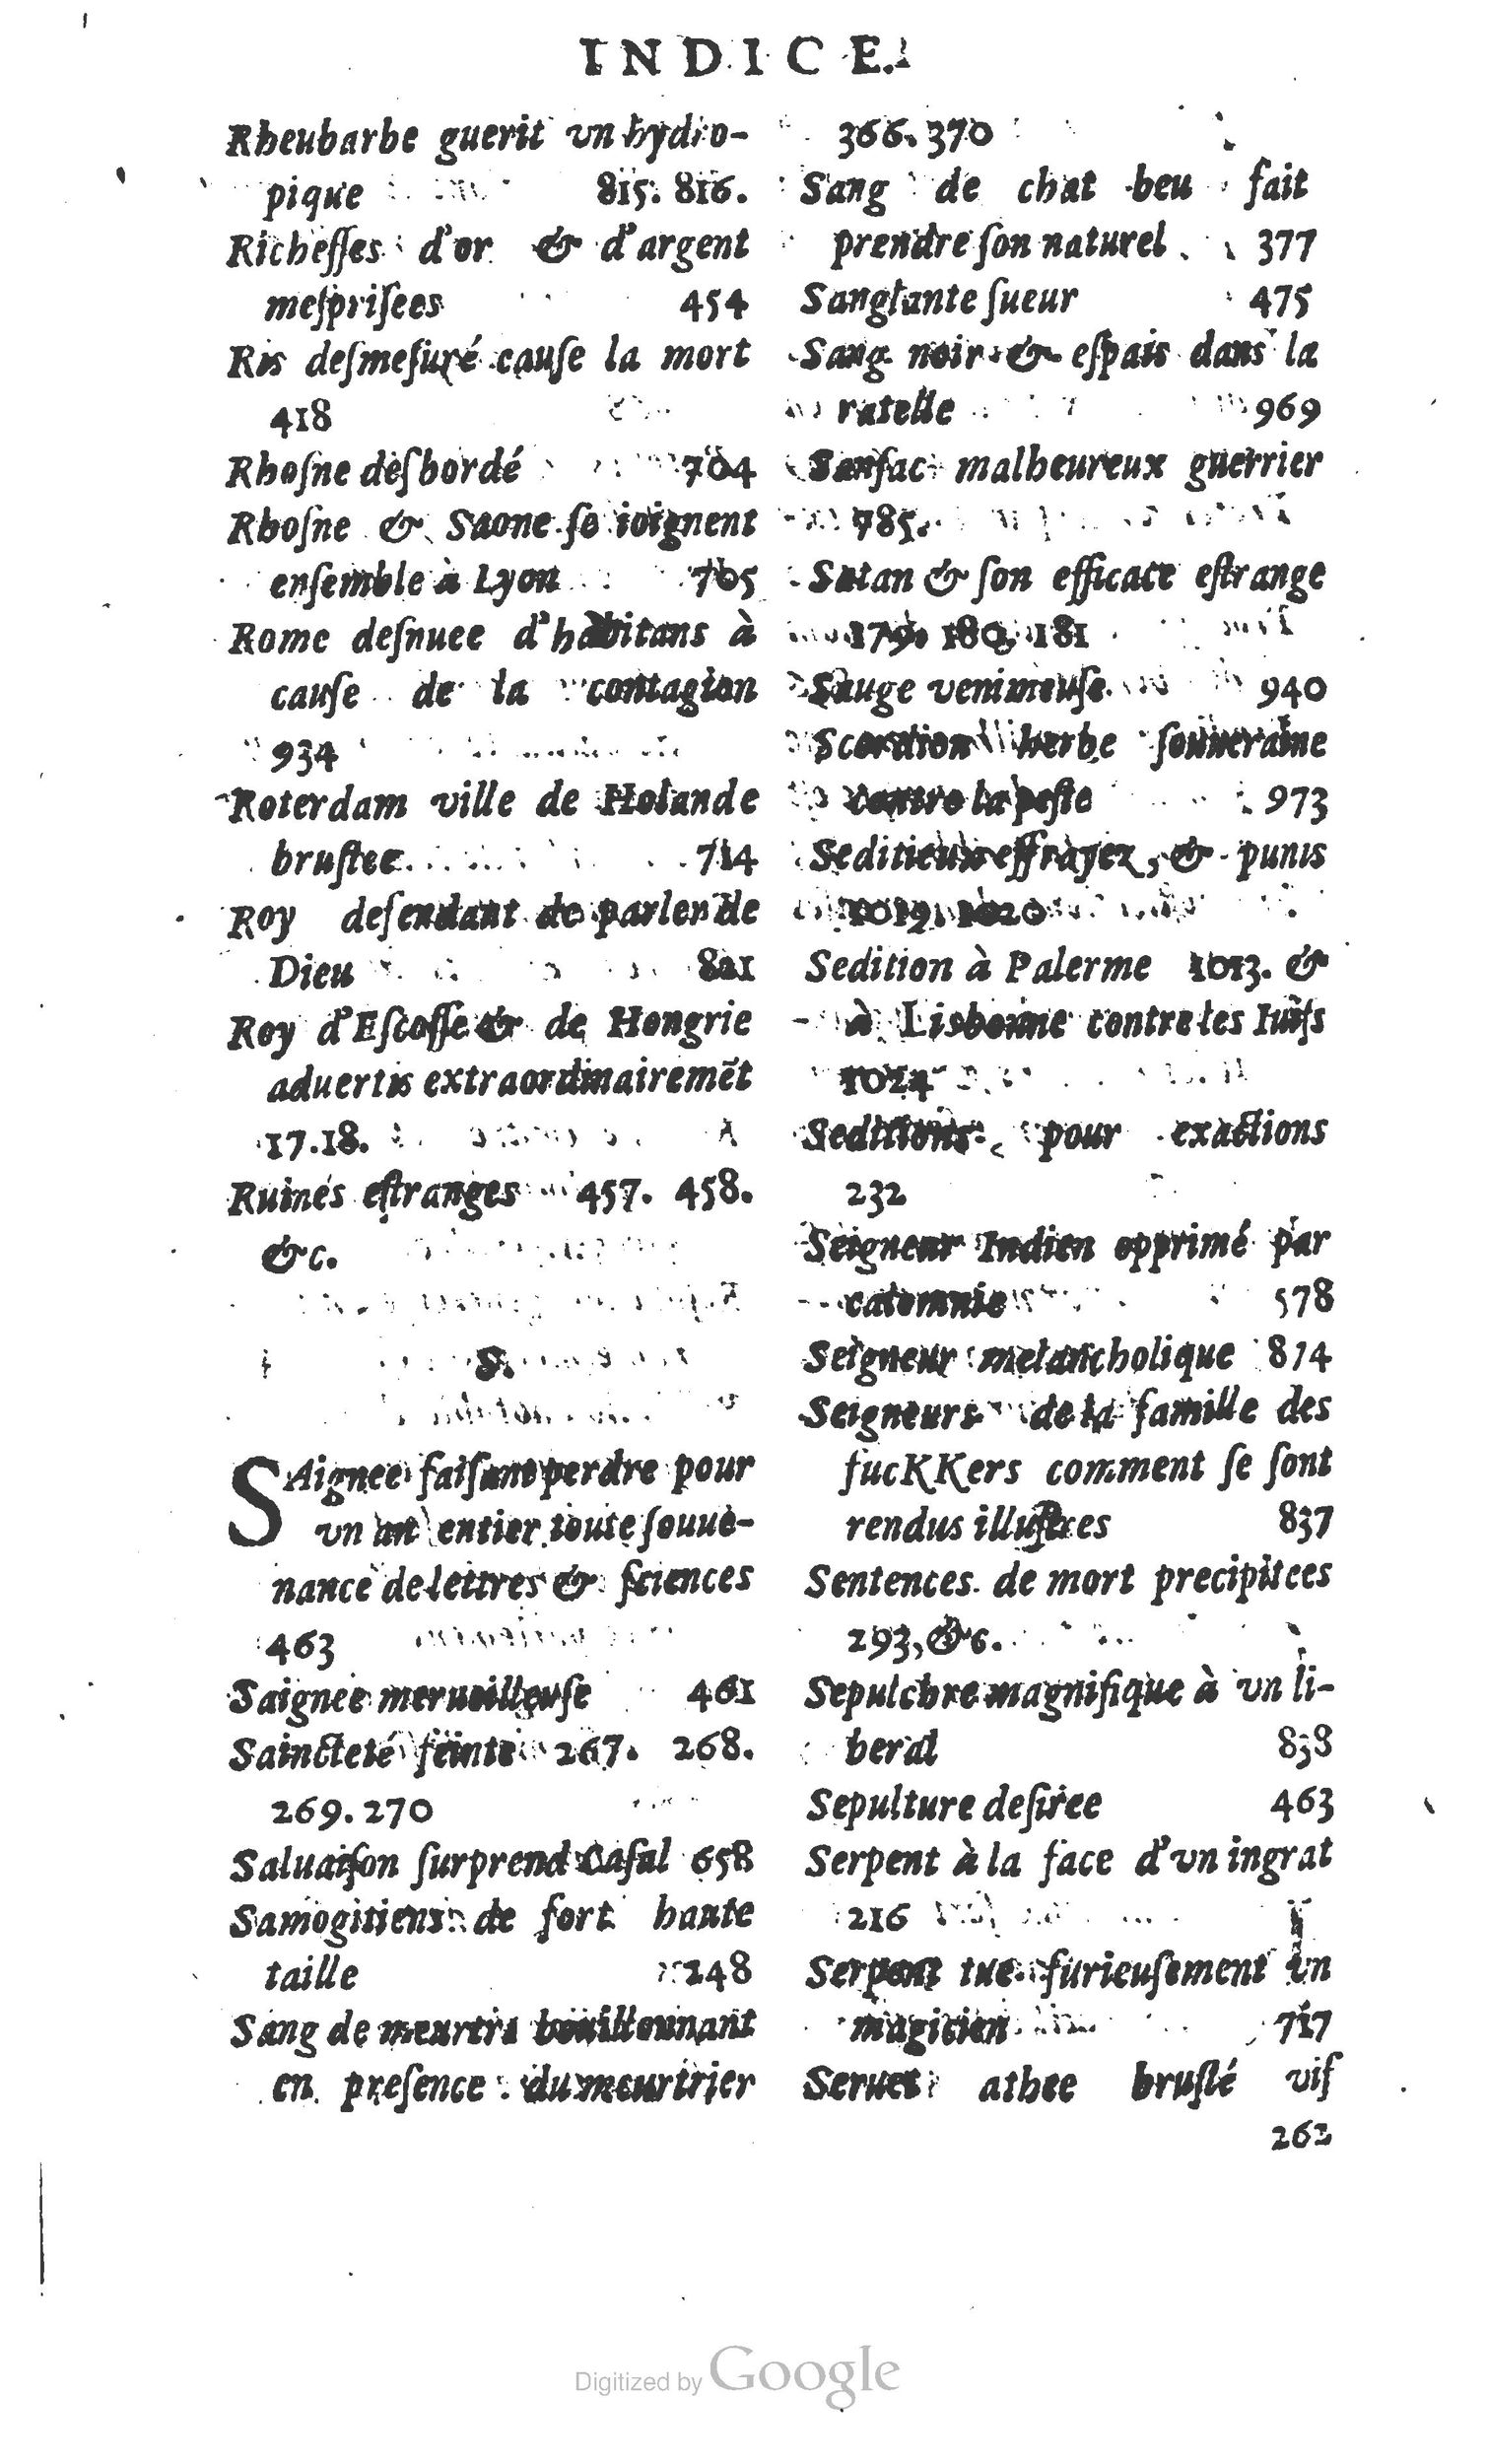 INDICE.
Rheubarbe guerit vn hydro-
pique 815. 816.
Richeſſes d'or & d'argent
meſpriſees 454
Ris deſmeſuré cauſe la mort
418
Rhoſne deſbordé 704
Rhoſne & Saone ſe ioignent
enſemble à Lyon 705
Rome deſnuee d'habitans à
cauſe de la contagion
934
Roterdam ville de Holande
bruſlee 714
Roy defendant de parler de
Dieu 821
Roy d'Eſcoſſe & de Hongrie
aduertis extraordinairemēt
17.18.
Ruines eſtranges 457. 458.
&c.
S.
SAignee faiſant perdre pour
vn an entier toute ſouue-
nance de lettres & ſciences
463
Saignee merueilleuſe 461
Saincteté feinte 267. 268.
269.270
Saluaiſon ſurprend Caſal 658
Samogitiens de fort haute
taille 248
Sang de meurtri bouillonnant
en preſence du meurtrier
366. 370
Sang de chat beu fait
prendre ſon naturel 377
Sanglante ſueur 475
Sang noir & eſpais dans la
ratelle 969
Sanſac malheureux guerrier
785.
Satan & ſon efficace eſtrange
179. 180. 181
Sauge venimeuſe 940
Scordion herbe ſouueraine
contre la peſte 973
Seditieux effrayez, & punis
1019. 1020
Sedition à Palerme 1013. &
à Lisbonne contre les Iuifs
1024
Seditions pour exactions
232
Seigneur Indien opprimé par
calomnie 578
Seigneur melancholique 874
Seigneurs de la famille des
fucKKers comment ſe ſont
rendus illuſtres 837
Sentences de mort precipitees
293, &c.
Sepulchre magnifique à vn li-
beral 838
Sepulture deſiree 463
Serpent à la face d'vn ingrat
216
Serpent tue furieuſement vn
magicien 717
Seruet athee bruſlé vif
262
Digitized by Google